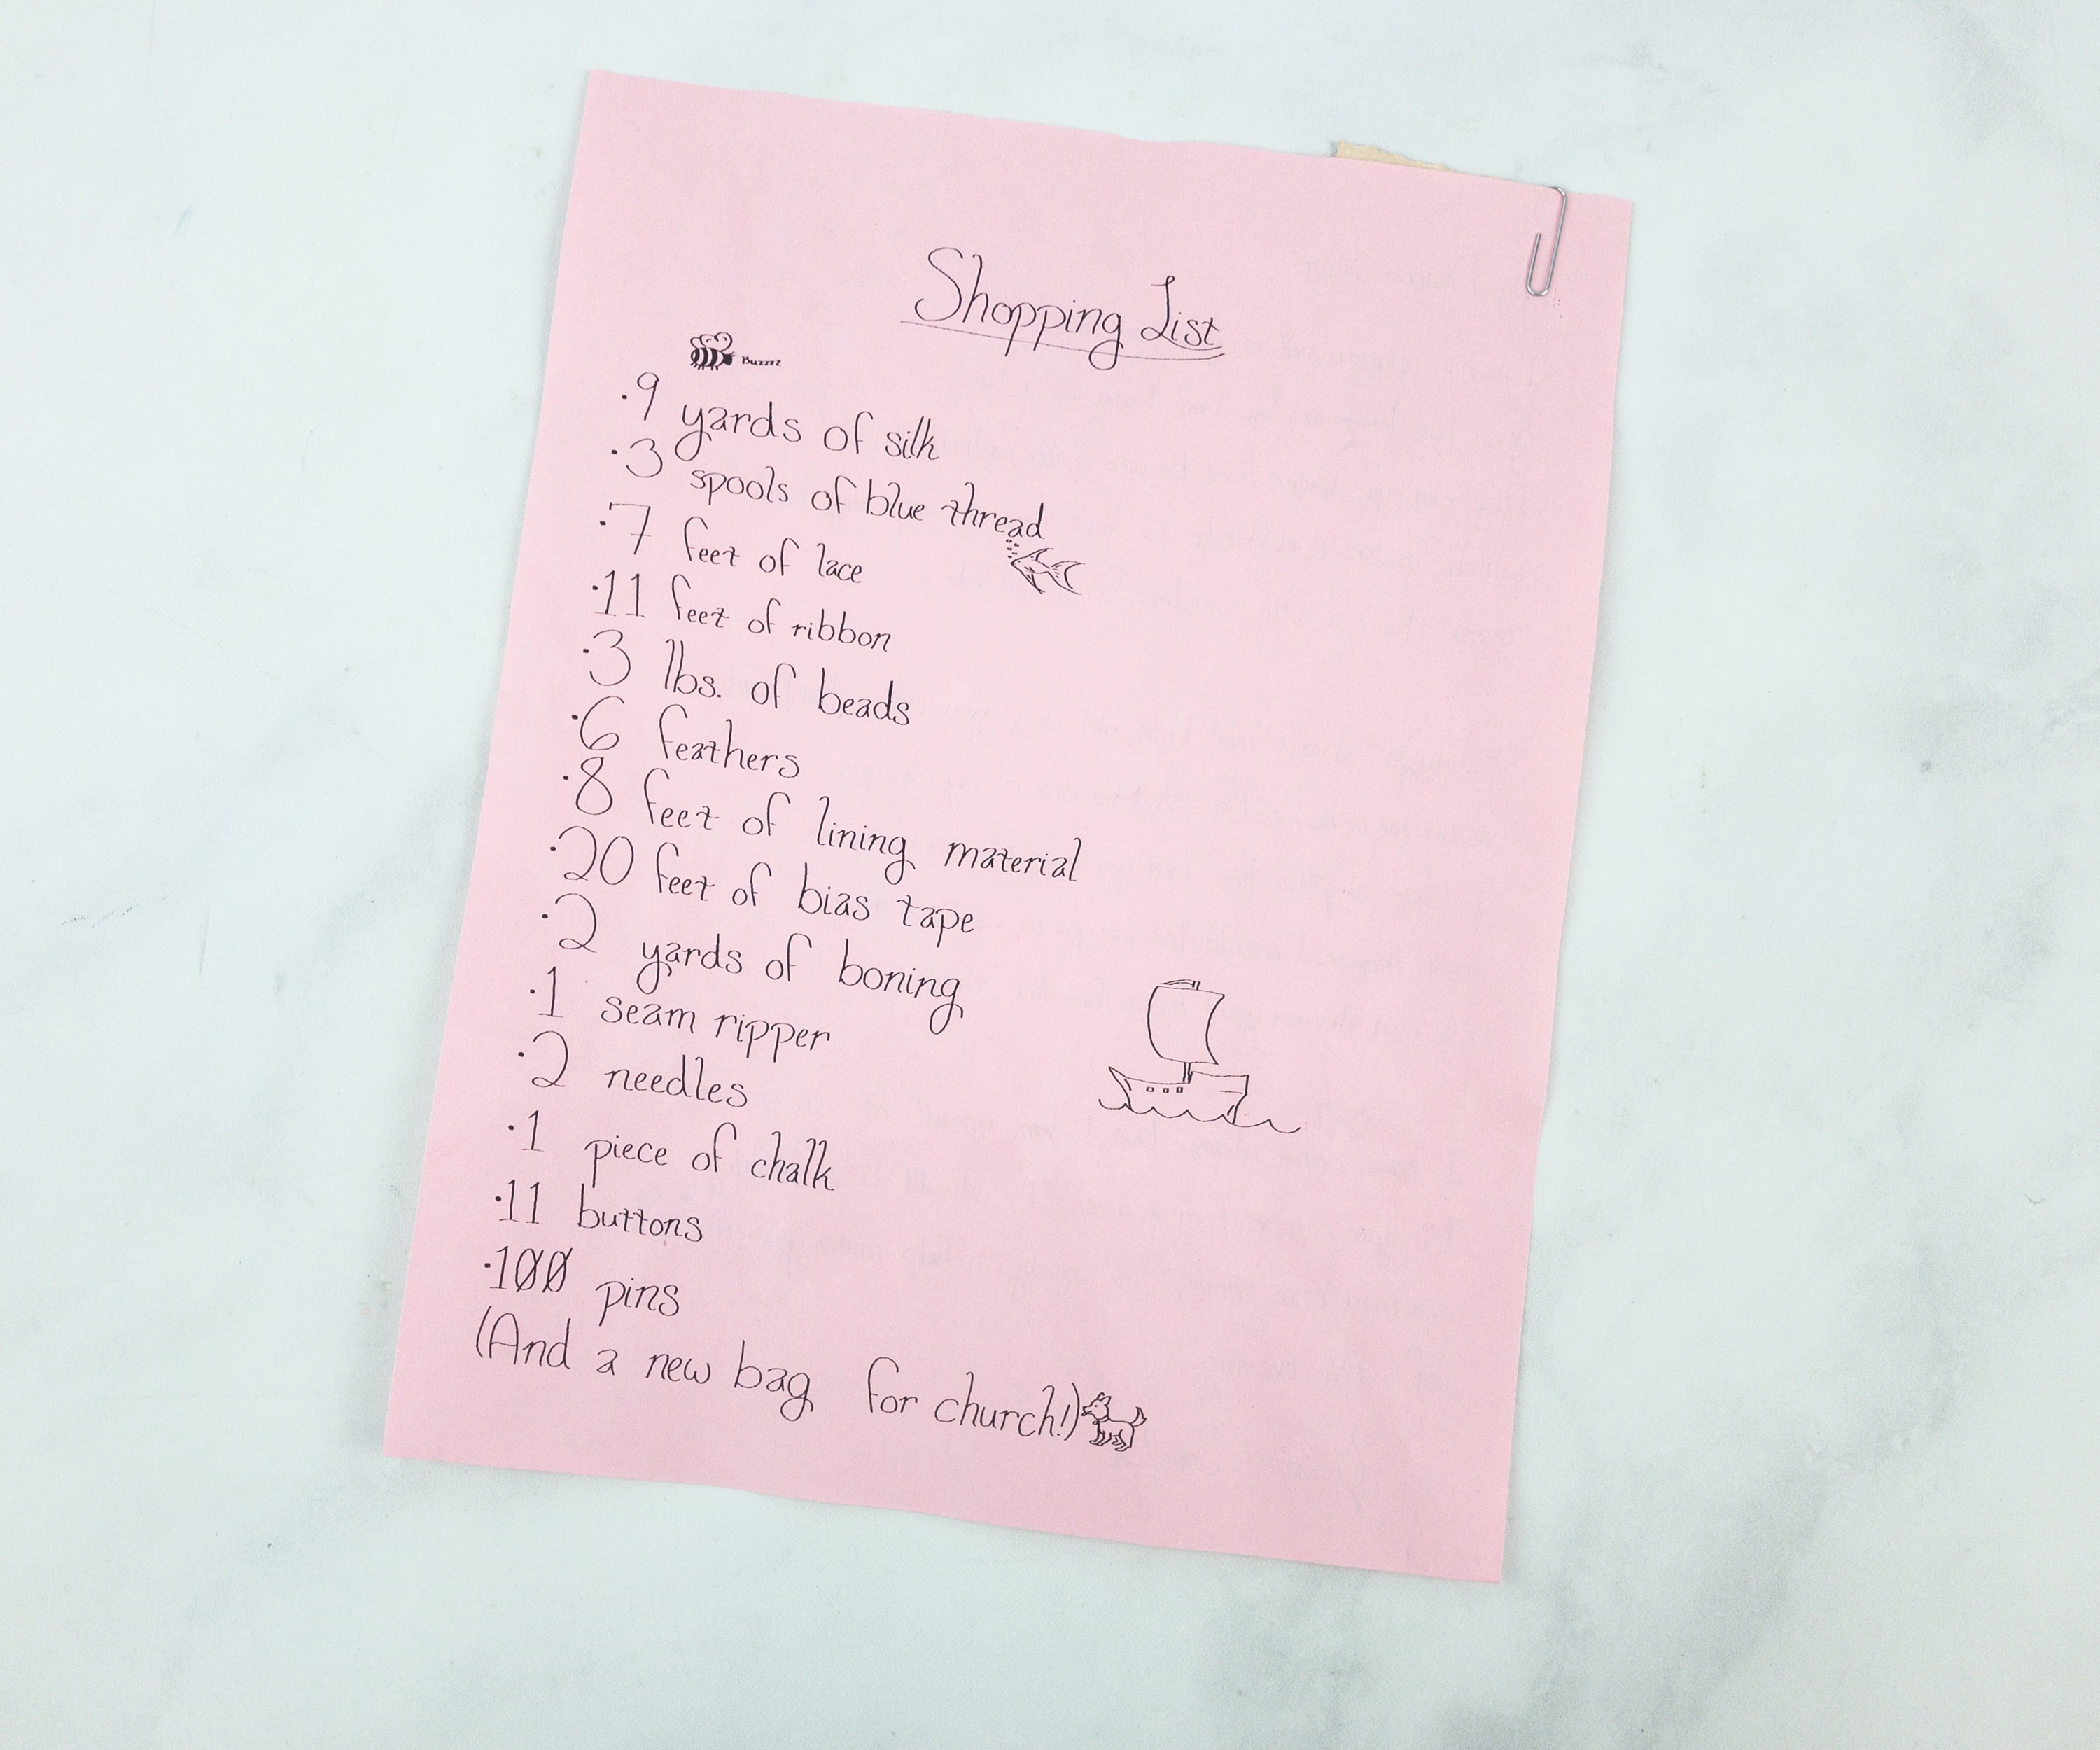 Shopping List
Buzzzz
·9 yards of silk
·3 spools of blue thread
·7 feet of lace
·11 feet of ribbon
·3 lbs. of beads
·6 feathers
·8 feet of lining material
·20 feet of bias tape
·2 yards of boning
·1 seam ripper
·2 needles
·1 piece of chalk
·11 buttons
·100 pins
(And a new bag for church!)